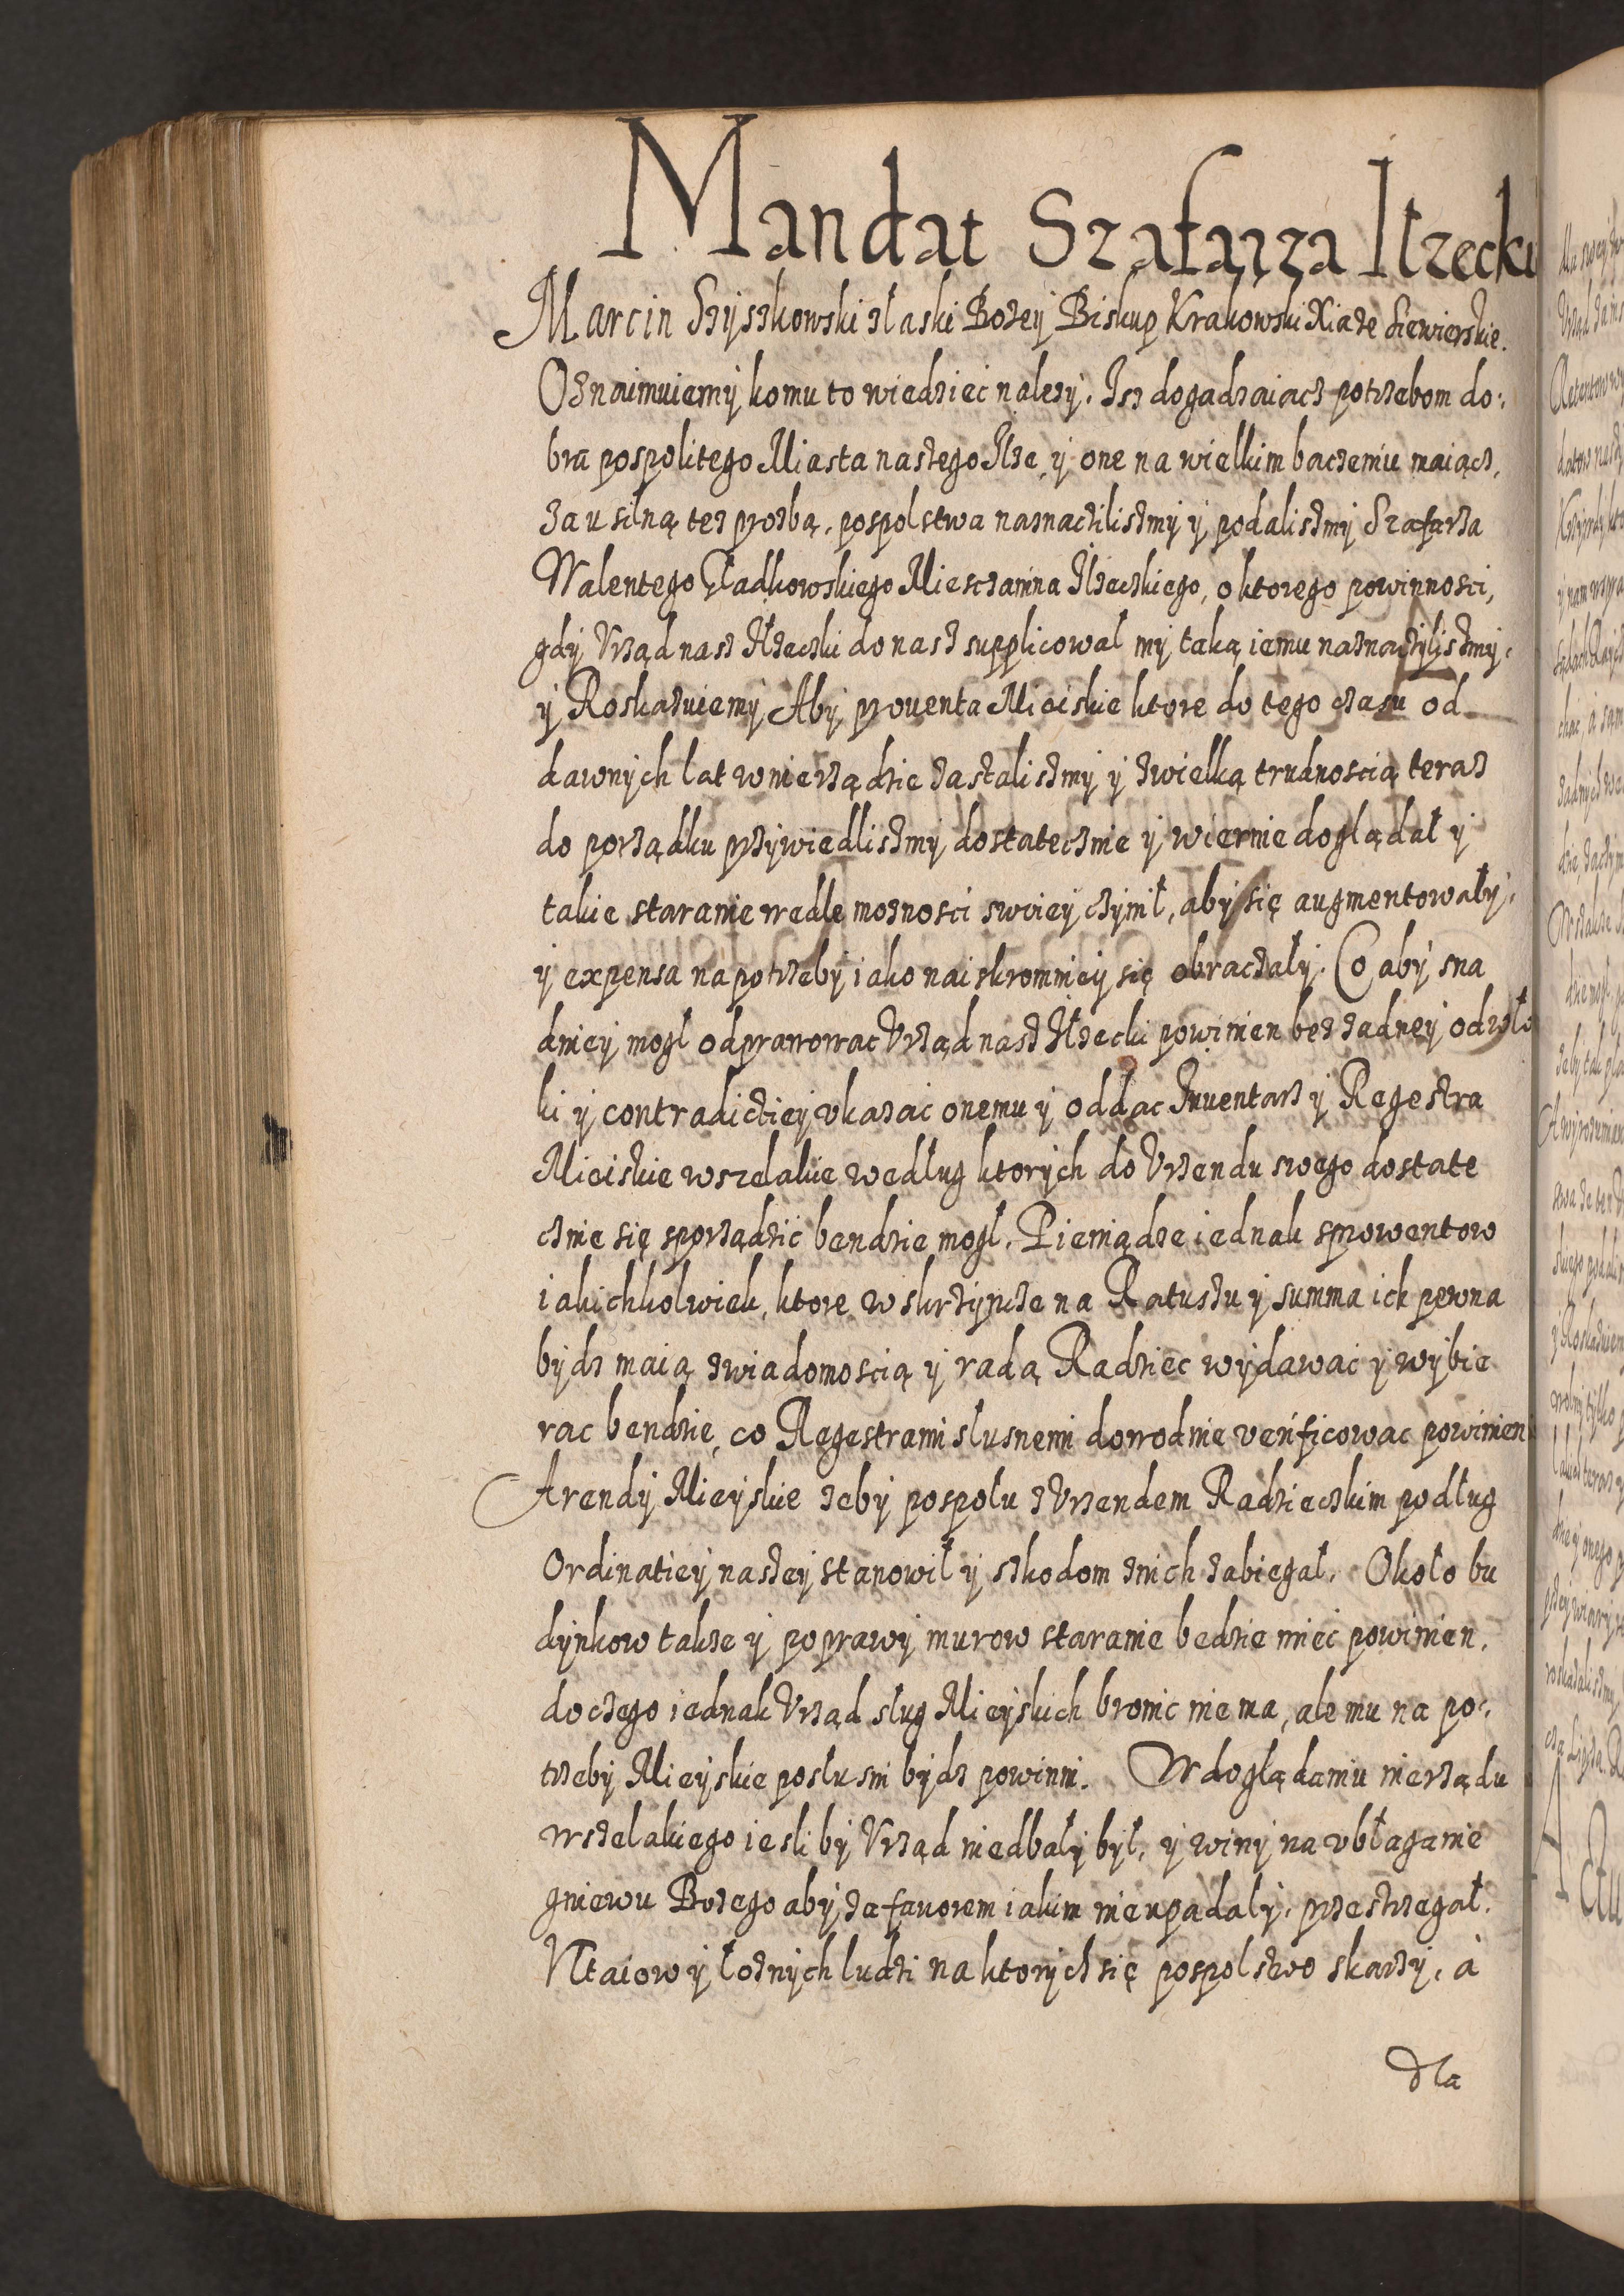 Mandat Szafarza Ilzecki
Marcin Szyszkowski z laski Bozey Biskup Krakowski Xiąze Siewierskie.
Oznaimuiemy komu to wiedziec nalezy. Isz dogadzaiacz potrzebom do:
bra pospolitego Miasta naszego Ilze y one na wielkim baczeniu maiącz,
za usilną tez prozbą, pospolstwa naznaczilismy y podalismy Szafarza
Walentego Gladkowskiego Miesczanina Ilzeczkiego, o ktorego powinnosci,
gdy Vrząd nasz Ilzeczki do nasz supplicowal my taką iemu naznaczylismy,
y Roskazuiemy Aby prouenta Mieiskie ktore do tego czasu od
dawnych lat w nierządzie zastalismy y z wielką trudnoscią teraz
do porządku przywiedlismy dostatecznie y wiernie doglądał y
takie staranie wedle moznosci swoiey czynił, aby się augmentowały,
y expensa na potrzeby iako naiskromniey się obraczały. Co aby sna
dniey mogl odprawowac Vrząd nasz Ilzecki powinien bez zadney odwlo
ki y contradictiey vkazac onemu y oddac Inuentarz y Regestra
Mieiskie wszelakie według ktorych do Vrzendu swego dostate
cznie się sporządzic bendzie mogl. Pieniądze iednak sprowentow
iakichkolwiek, ktore w skrzynce na Ratuszu y summa ich pewna
bydz maią z wiadomoscią y radą Radziec wydawac y wybie
rac bendzie, co Regestrami slusnemi dowodnie verificowac powinien
Arendy Mieyskie zeby pospołu z Vrzendem Radzieczkim podług
Ordinatiey naszey stanowił y szkodom z nich zabiegał. Około bu
dynkow takze y poprawy murow staranie bedzie miec powinien,
do czego iednak Vrząd sług Mieyskich bronic nie ma, ale mu na po:
trzeby Mieyskie poslusni bydz powinni. W doglądaniu nierządu
wszelakiego iesliby Vrząd niedbały był, y winy na vbłaganie
gniewu Bozego aby za fauorem iakim nie upadały, przestrzegał.
Vltaiow y łoznych ludzi na ktorych się pospolstwo skarzy, a
dla